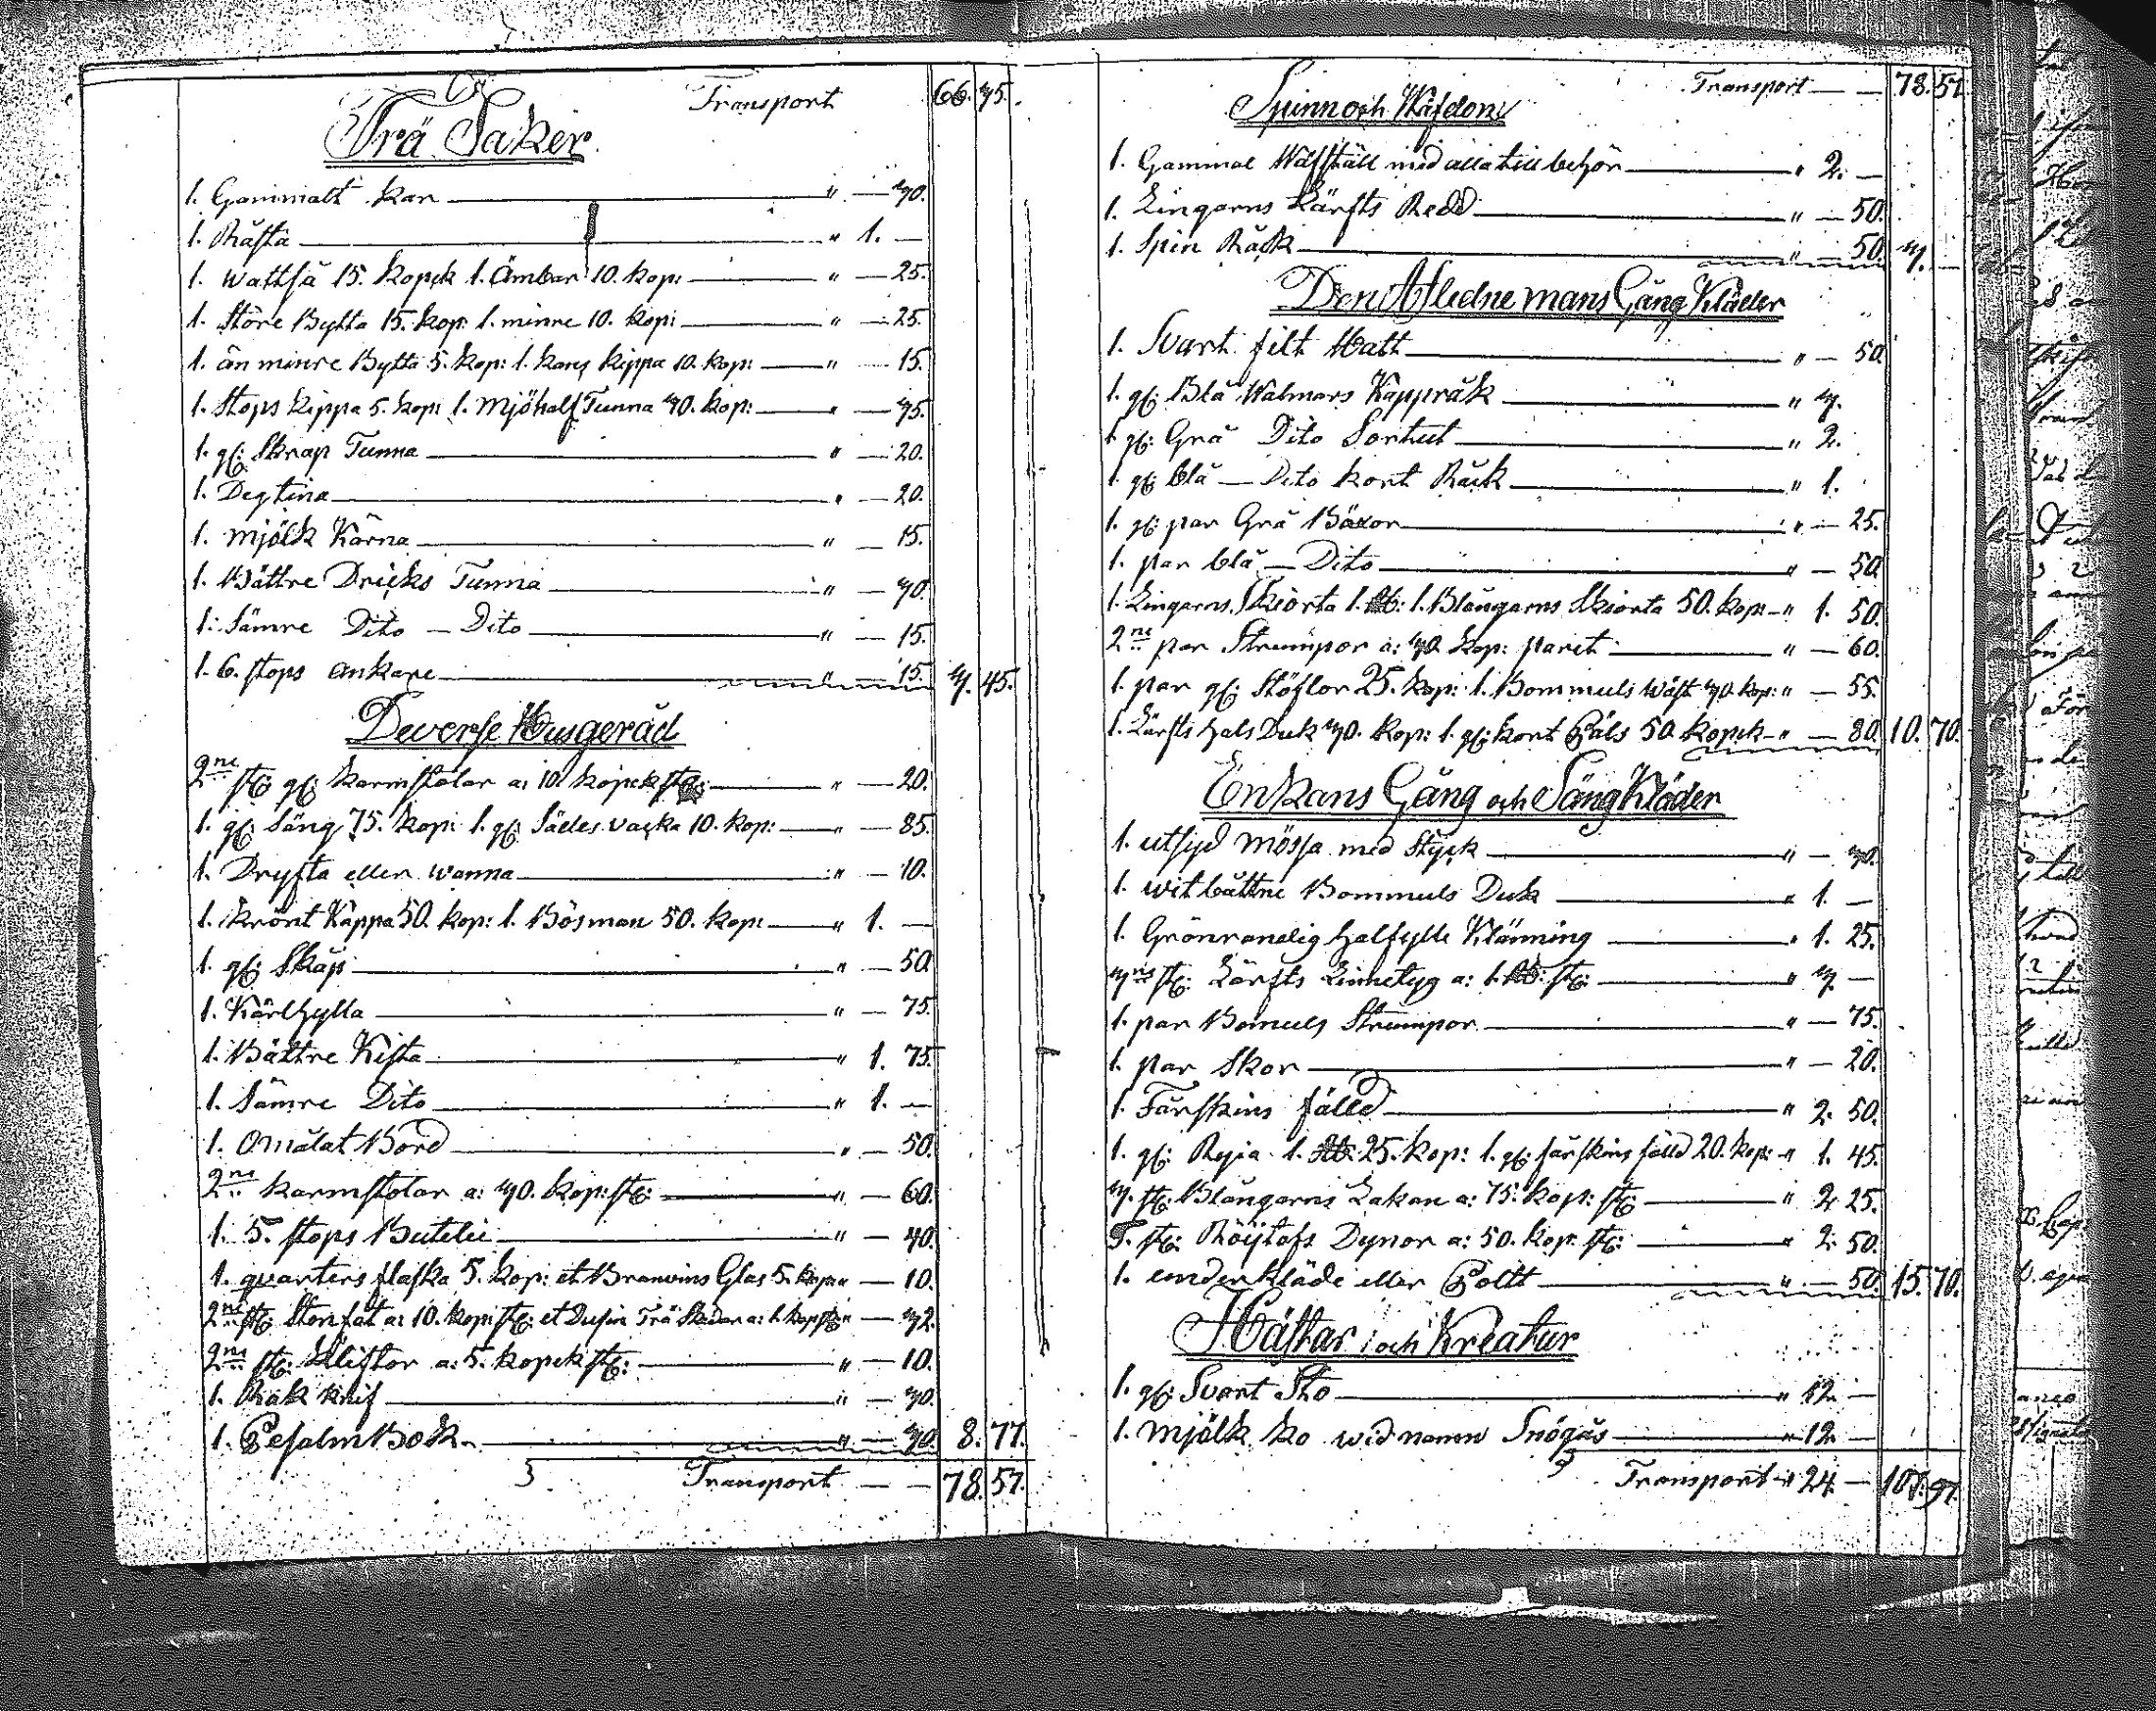 Transport 66. 35.
Trä Saker
1. Gammalt kar " — 30.
1. Råsta " 1. —
1. Wattså 15. kopek 1. Ämbar 10. kop: " — 25.
1. Störe Bytta 15. kop: 1. minre 10. kop: " — 25.
1. än minre Bytta 5. kop: 1. kans kippa 10. kop: " — 15.
1. Stops kippa 5. kop: 1. Mjöhalf Tunna 30. kop: " — 35.
1. gl: Skrap Tunna " — 20.
1. Degtina " — 20.
1. Mjölk Kärna " — 15.
1. Bättre Dricks Tunna " — 30.
1. Sämre Dito — Dito " — 15.
1. 6. stops ankare " — 15. 3. 45.
Deverse Husgeråd
2ne st: gl: karmstolar a: 10. kopek st: " — 20.
1. gl: Säng 75. kop: 1. gl: Sädes vacka 10. kop: " — 85.
1. Dryfta eller wanna " — 10.
1. Krönt Kappa 50. kop: 1. Bösman 50. kop: " 1. —
1. gl: Skåp " — 50.
1. Kärlhylla " — 75.
1. Bättre Kista " 1. 75.
1. Sämre Dito " 1. —
1. Omålat Bord " — 50.
2ne karmstolar a: 30. kop: st: " — 60.
1. 5. stops Butelie " — 40.
1. qvarters flaska 5. kop: et Branvins Glas 5. kop: " — 10.
2ne st: Stenfat a: 10. kop: st: et Dusin Trä Skedar a: 1. kop st: " — 32.
2ne st: Klistor a: 5. kopek st: " — 10.
1. Rak knif " — 30.
1. Psalm Bok " — 30. 8. 77.
Transport — — 78. 57.
Transport — — 78. 57.
Spinn och Wäfdon
1. Gammal Wäfställ med alla till behör " 2. —
1. Lingarns Lärfts Redd " — 50.
1. Spin Råck " — 50. 3. —
Den Aflidne mans Gång Kläder
1. Svart filt Hatt " — 50.
1. gl: Blå Walmars Kappråk " 3.
1. gl: Grå Dito Sortut " 2.
1. gl: blå — Dito kort Råck " 1.
1. gl: par Grå Bäxor " — 25.
1. par blå — Dito " — 50.
1. Lingarns Skiorta 1. Rb: 1. Blångarns Skiorta 50. kop: " 1. 50.
2ne par Strumpor a: 30. kop: paret " — 60.
1. par gl: Stöflor 25. kop: 1. Bommuls Wäst 30. kop: " — 55.
1. Lärfts hals Duk 30. kop: 1. gl: kort Päls 50. kopek " — 80. 10. 70.
Enkans Gång och Säng Kläder
1. utsyd Mössa med Styck " — 30.
1. wit bättre Bommuls Duk " 1. —
1. Grönrandig halfylle Klänning " 1. 25.
3ne st: Lärfts Linnetyg a: 1. Rb: st: " 3 —
1. par Bomuls Strumpor " — 75.
1. par Skor " — 20.
1. Fårskins fälld " 2. 50.
1. gl: Ryia 1. Rb: 25. kop: 1. gl: fårskins fälld 20. kop: " 1. 45.
3. st: Blångarns Lakan a: 75. kop: st: " 2. 25.
5. st: Röjtofs Dynor a: 50. kop: st: " 2. 50.
1. underkläde eller Poltt " — 50. 15. 70.
Hästar och Kreatur
1. gl: Svart Sto " 12. —
1. Mjölk ko wid namn Snögås " 12. —
Transport " 24. — 107. 97.